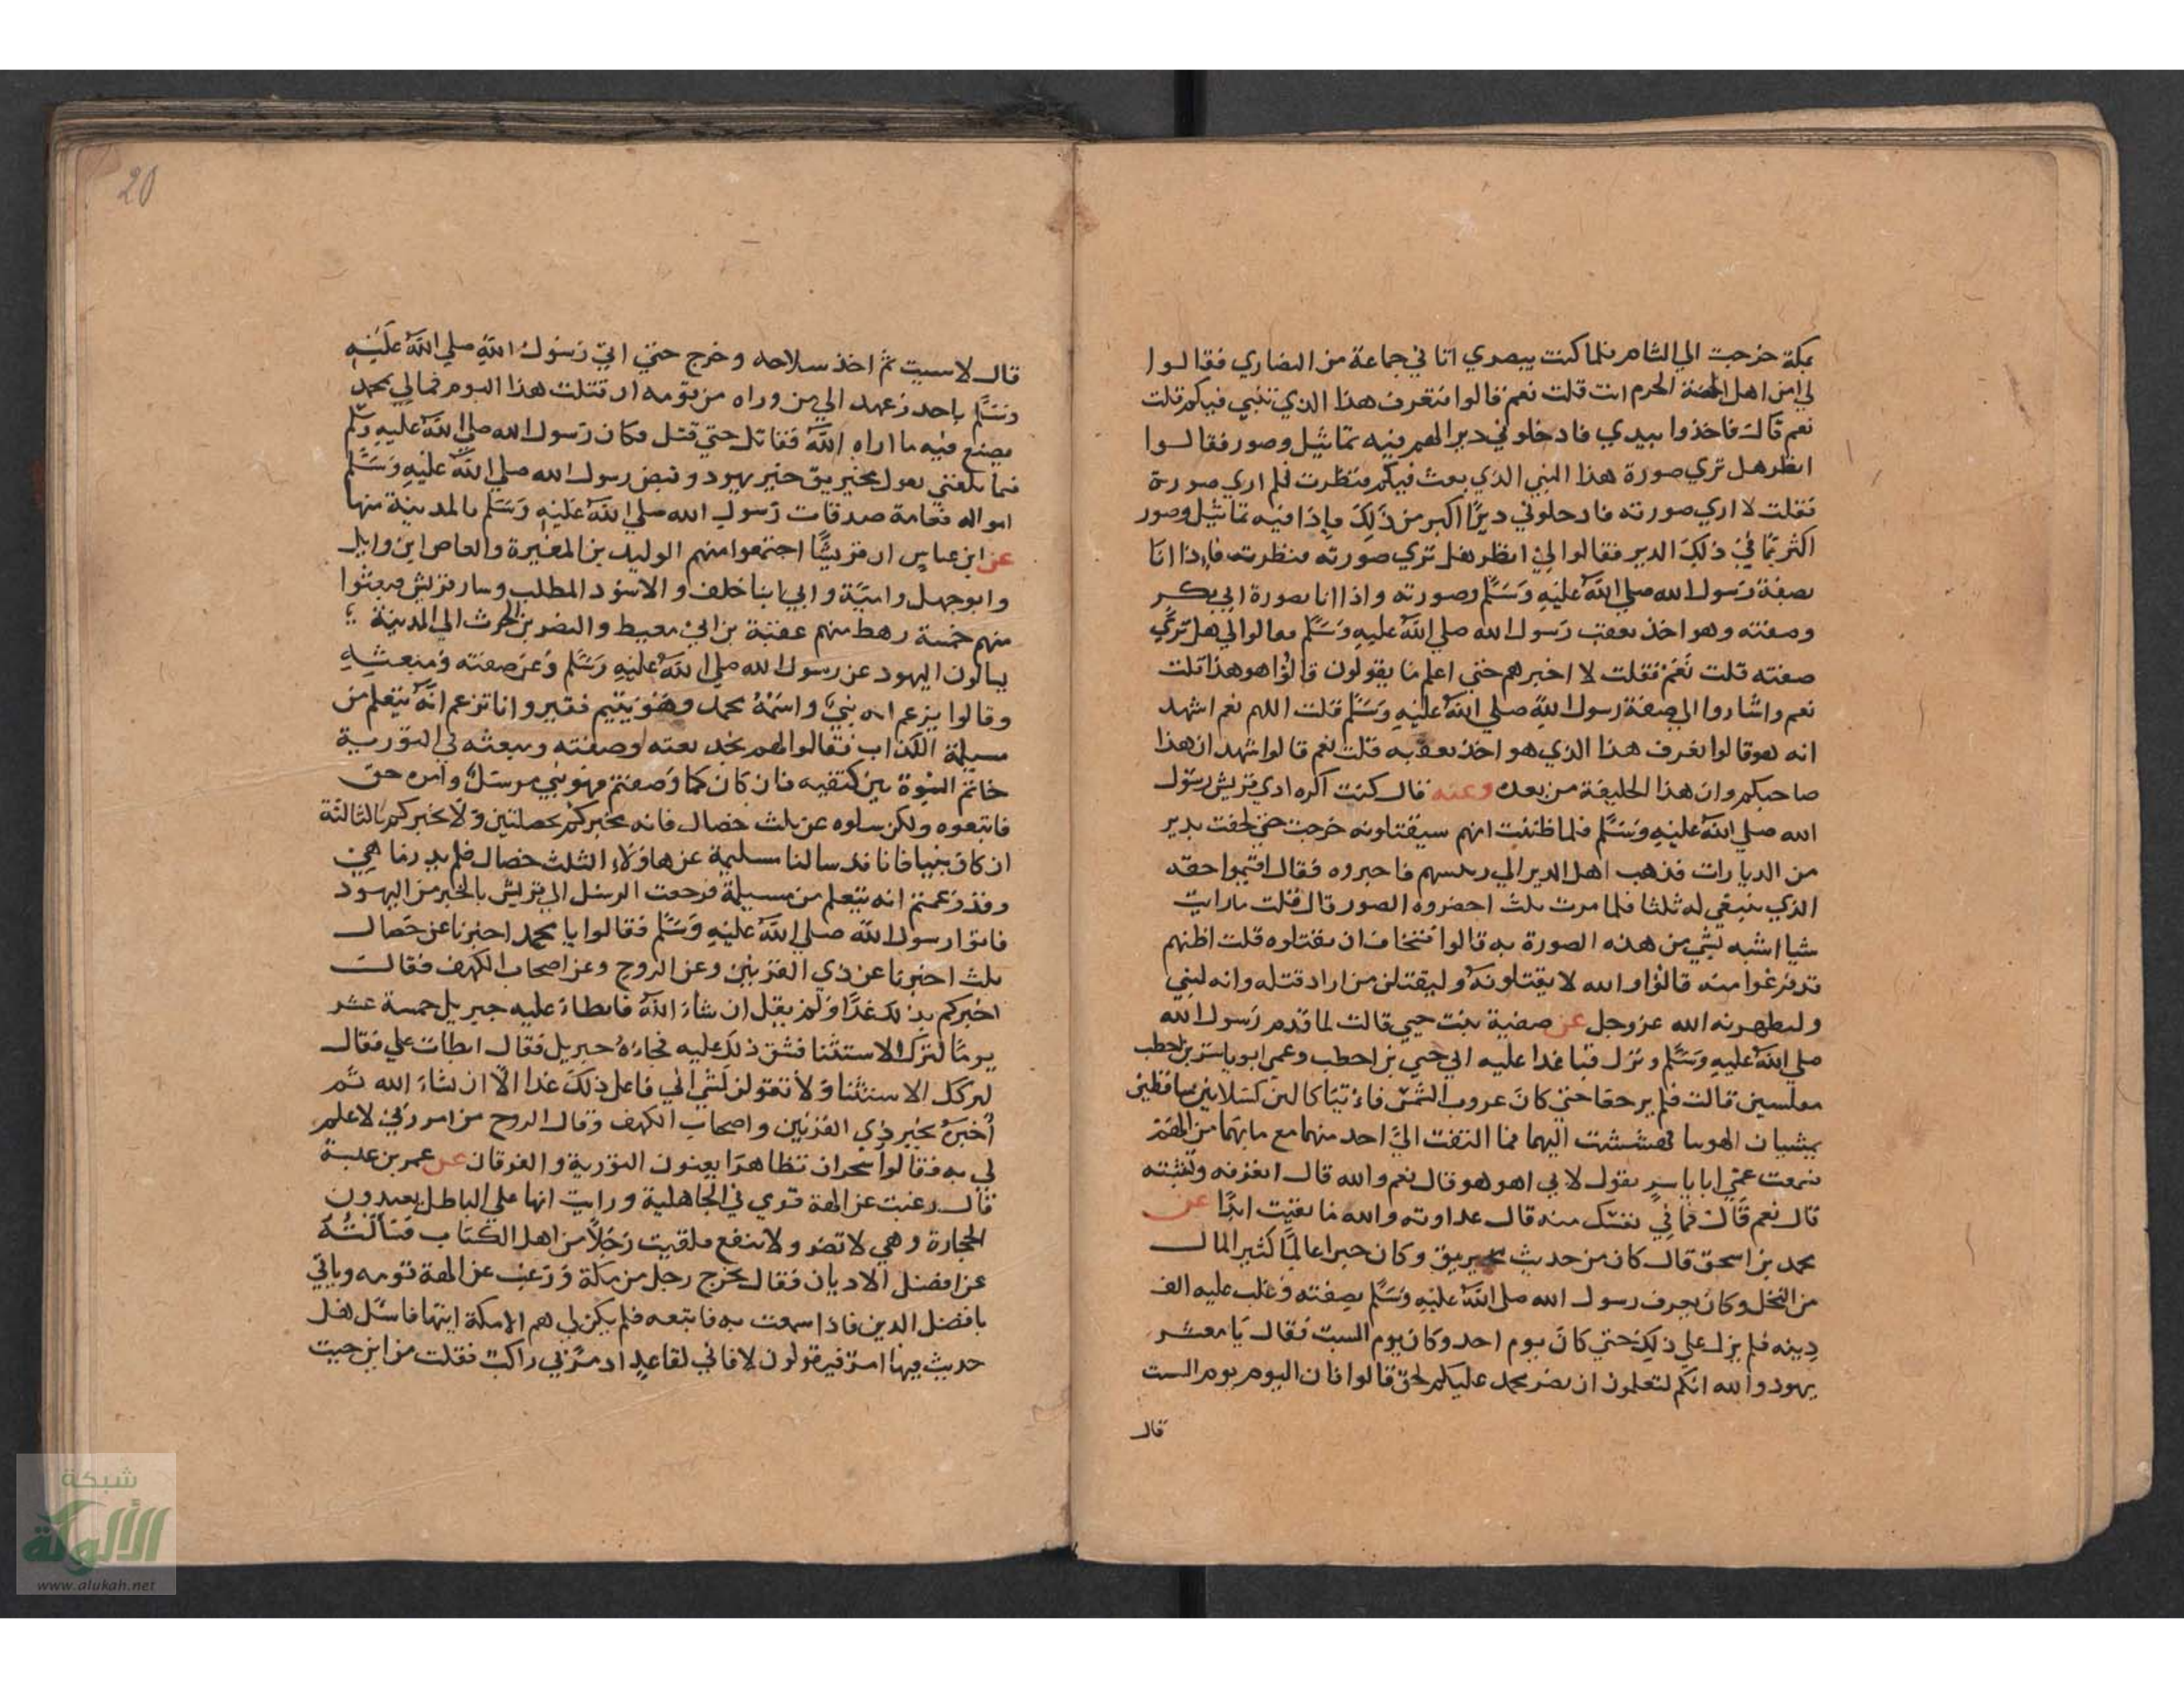 بمكة خرجت الي الشام فلما كنت ببصري اتاني جماعة من النصاري فقالوا
لي امن اهل الحرم انت قلت نعم قالوا فتعرف هذا الذي تنبي فيكم قلت
نعم قال فاخذوا بيدي فادخلوني ديرا لهم فيه تماثيل وصور فقالوا
انظر هل تري صورة هذا النبي الذي بعث فيكم فنظرت فلم اري صورة
فقلت لا اري صورته فادخلوني ديرًا اكبر من ذلك فاذا فيه تماثيل وصور
اكثر مما في ذلك الدير فقالوا لي انظر هل تري صورته فنظرت فاذا انا
بصفة رسول الله صلي الله عليه وسلم وصورته واذا انا بصورة ابي بكر
وصفته وهو اخذ بعقب رسول الله صلي الله عليه وسلم فقالوا لي هل تري
صفته قلت نعم فقلت لا اخبرهم حتي اعلم ما يقولون قالوا اهو هذا قلت
نعم واشاروا الي صفة رسول الله صلي الله عليه وسلم قلت اللهم نعم اشهد
انه هو قالوا تعرف هذا الذي هو اخذ بعقبه قلت نعم قالوا نشهد ان هذا
صاحبكم وان هذا الخليفة من بعده وعنه قال كنت اكره اذي قريش رسول
الله صلي الله عليه وسلم فلما ظننت انهم سيقتلونه خرجت حتي لحقت بدير
من الديارات فذهب اهل الدير الي رئيسهم فاخبروه فقال اقيموا حقه
الذي ينبغي له ثلثا فلما مرت ثلث احضروه الصور قال قلت ما رايت
شيا اشبه بشي من هذه الصورة به قالوا فتخاف ان يقتلوه قلت اظنهم
قد فرغوا منه قالوا والله لا يقتلونه وليقتلن من اراد قتله وانه لنبي
وليظهرنه الله عز وجل عن صفية بنت حيي قالت لما قدم رسول الله
صلي الله عليه وسلم ونزل قبا غدا عليه ابي حيي بن اخطب وعمي ابو ياسر بن اخطب
مغلسين قالت فلم يرجعا حتي كان غروب الشمس فاتيا كالين كسلانين ساقطين
يمشيان الهوينا فهششت اليهما فما التفت الي احد منهما مع ما بهما من الغم
فسمعت عمي ابا ياسر يقول لابي اهو هو قال نعم والله قال اتعرفه وتثبته
قال نعم قال فما في نفسك منه قال عداوته والله ما بقيت ابدًا عن
محمد بن اسحق قال كان من حديث مخيريق وكان حبرا عالمًا كثير المال
من النخل وكان يعرف رسول الله صلي الله عليه وسلم بصفته وغلب عليه الف
دينه فلم يزل علي ذلك حتي كان يوم احد وكان يوم السبت فقال يا معشر
يهود والله انكم لتعلمون ان نصر محمد عليكم لحق قالوا فان اليوم يوم السبت
قال
20
قال لا سبت ثم اخذ سلاحه وخرج حتي اتي رسول الله صلي الله عليه
وسلم باحد وعهد الي من وراه من قومه ان قتلت هذا اليوم فمالي لمحمد
يصنع فيه ما اراه الله فقاتل حتي قتل فكان رسول الله صلي الله عليه وسلم
فيما بلغني يقول مخيريق خير يهود وقبض رسول الله صلي الله عليه وسلم
امواله فعامة صدقات رسول الله صلي الله عليه وسلم بالمدينة منها
عن ابن عباس ان قريشًا اجتمعوا منهم الوليد بن المغيرة والعاص ابن وايل
وابو جهل وامية وابي ابنا خلف والاسود المطلب وساير قريش فبعثوا
منهم خمسة رهط منهم عقبة بن ابي معيط والنضر بن الحرث الي المدينة
يسالون اليهود عن رسول الله صلي الله عليه وسلم وعن صفته ومبعثه
وقالوا يزعم انه نبي واسمه محمد وهو يتيم فقير وانا نزعم انه يتعلم من
مسيلمة الكذاب فقالوا لهم نجد نعته وصفته ومبعثه في التورية
خاتم النبوة بين كتفيه فان كان كما وصفتم فهو نبي مرسل وامره حق
فاتبعوه ولكن سلوه عن ثلث خصال فانه يخبركم بخصلتين ولا يخبركم بالثالثة
ان كان نبيا فانا قد سالنا مسيلمة عن هاولاء الثلث خصال فلم يدر ما هي
وقد زعمتم انه يتعلم من مسيلمة فرجعت الرسل الي قريش بالخبر من اليهود
فاتوا رسول الله صلي الله عليه وسلم فقالوا يا محمد اخبرنا عن خصال
ثلث اخبرنا عن ذي القرنين وعن الروح وعن اصحاب الكهف فقال
اخبركم بذلك غدًا ولم يقل ان شاء الله فابطاء عليه جبريل خمسة عشر
يومًا لترك الاستثنا فشق ذلك عليه فجاءه جبريل فقال ابطات علي فقال
لتركك الاستثنا ولا تقولن لشي اني فاعل ذلك غدا الا ان شاء الله ثم
اخبره بخبر ذي القرنين واصحاب الكهف وقال الروح من امر ربي لا علم
لي به فقالوا سحران تظاهرا يعنون التورية والفرقان عن عمر بن عبسة
قال رغبت عن الهة قومي في الجاهلية ورايت انها علي الباطل يعبدون
الحجارة وهي لا تضر ولا تنفع فلقيت رجلًا من اهل الكتاب فسألته
عن افضل الاديان فقال يخرج رجل من مكة ورغب عن الهة قومه وياتي
بافضل الدين فاذا سمعت به فاتبعه فلم يكن لي هم الا مكة ايتها فاسئل هل
حدث فيها امر فيقولون لا فاني لقاعد اذ مر بي راكب فقلت من اين جيت
شبكة
الألوكة
www.alukah.net